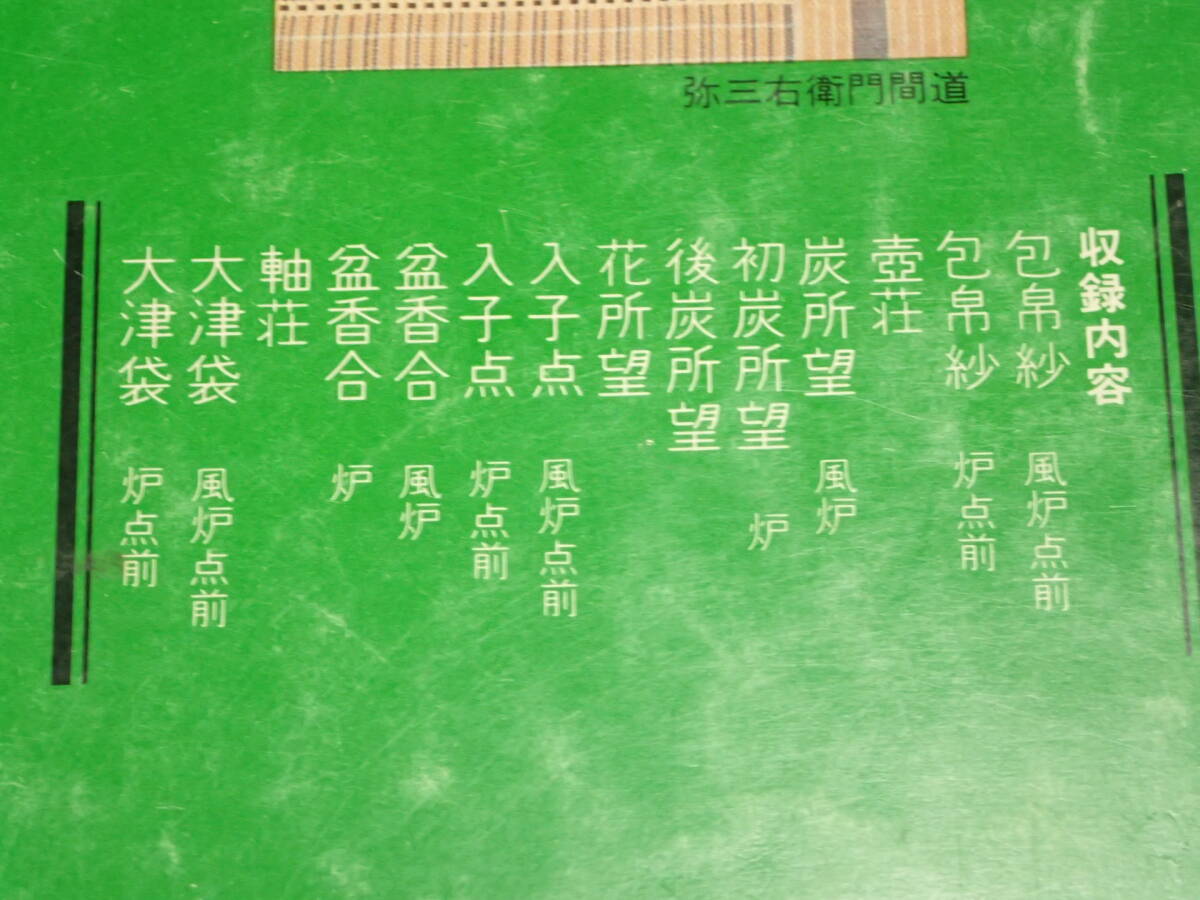 弥三右衛門間道
収録内容
包帛紗 風炉点前
包帛紗 炉点前
壺荘
炭所望 風炉
初炭所望 炉
後炭所望
花所望
入子点 風炉点前
入子点 炉点前
盆香合 風炉
盆香合 炉
軸荘
大津袋 風炉点前
大津袋 炉点前